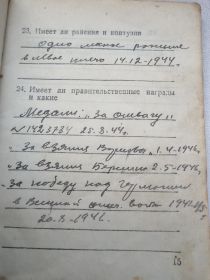 23. Имеет ли ранения и контузии
Одно легкое ранение
в левое плечо 14.12.1944 г.
24. Имеет ли правительственные награды
и какие
Медаль: "За отвагу"
25.8.44 г.
"За взятие Варшавы" 1.4.1946 г.
"За взятие Берлина" 2.5.1946 г.
"За победу над Германией
в Великой отеч. войне 1941-45
20.3-1946.
15